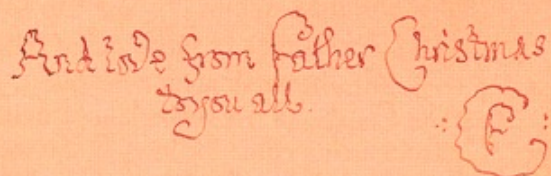 And love from Father Christmas
to you all.
FC